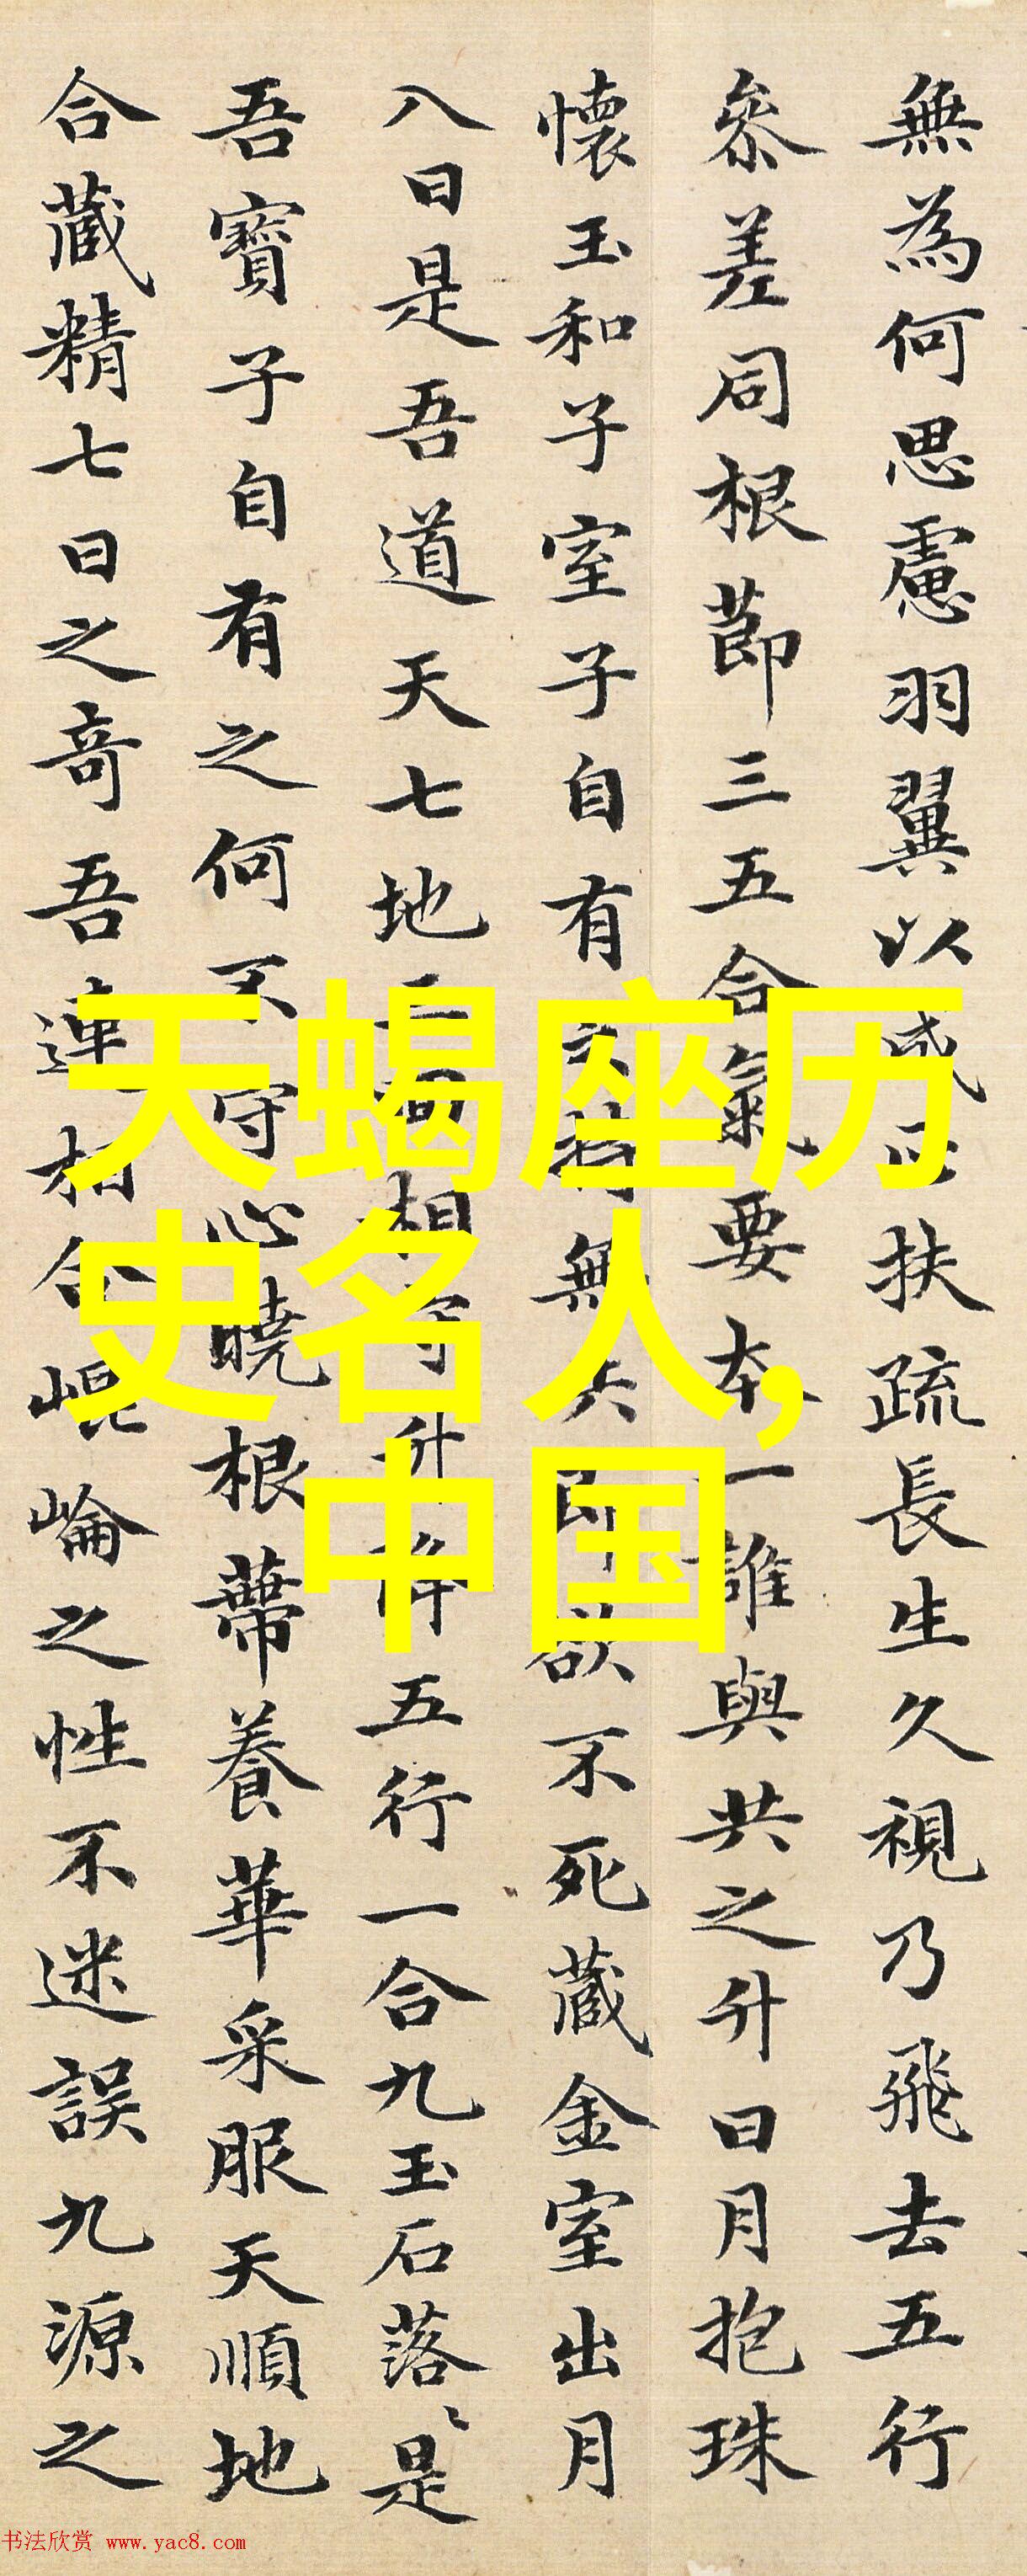 無為何思慮羽翼以成正扶疏長生久視乃飛去五行
參差同根節三五合氣要本一誰與共之升日月抱珠
懷玉和子室子自有之持無失即欲不死藏金室出月
八日是吾道天七地三回相守升降五行一合九玉石落〻是
吾寶子自有之何不守心曉根蔕養華采服天順地
合藏精七日之奇吾連相合崐崘之性不迷誤九源之
天蝎座历
史名人,
中国
书法欣赏 www.yac8.com